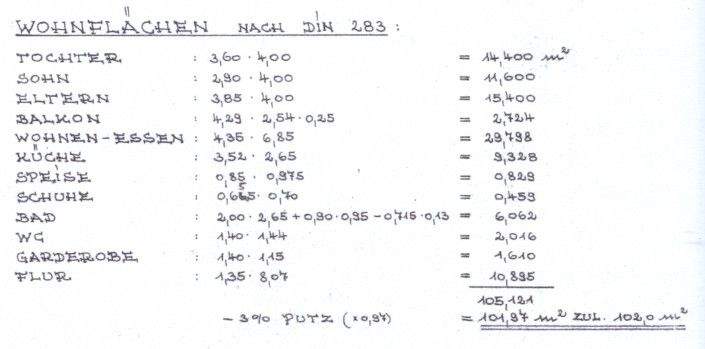 WOHNFLÄCHEN NACH DIN 283:
TOCHTER : 3,60 · 4,00 = 14,400 m²
SOHN : 2,90 · 4,00 = 11,600
ELTERN : 3,85 · 4,00 = 15,400
BALKON : 4,29 · 2,54 · 0,25 = 2,724
WOHNEN-ESSEN : 4,35 · 6,85 = 29,798
KÜCHE : 3,52 · 2,65 = 9,328
SPEISE : 0,85 · 0,975 = 0,829
SCHUHE : · 0,70 = 0,459
BAD : 2,00 · 2,65 + 0,90 · 0,95 − 0,715 · 0,13 = 6,062
WC : 1,40 · 1,44 = 2,016
GARDEROBE : 1,40 · 1,15 = 1,610
FLUR : 1,35 · 8,07 = 10,895
105,121
− 3% PUTZ (×0,97) = 101,97 m² ZUL. 102,0 m²